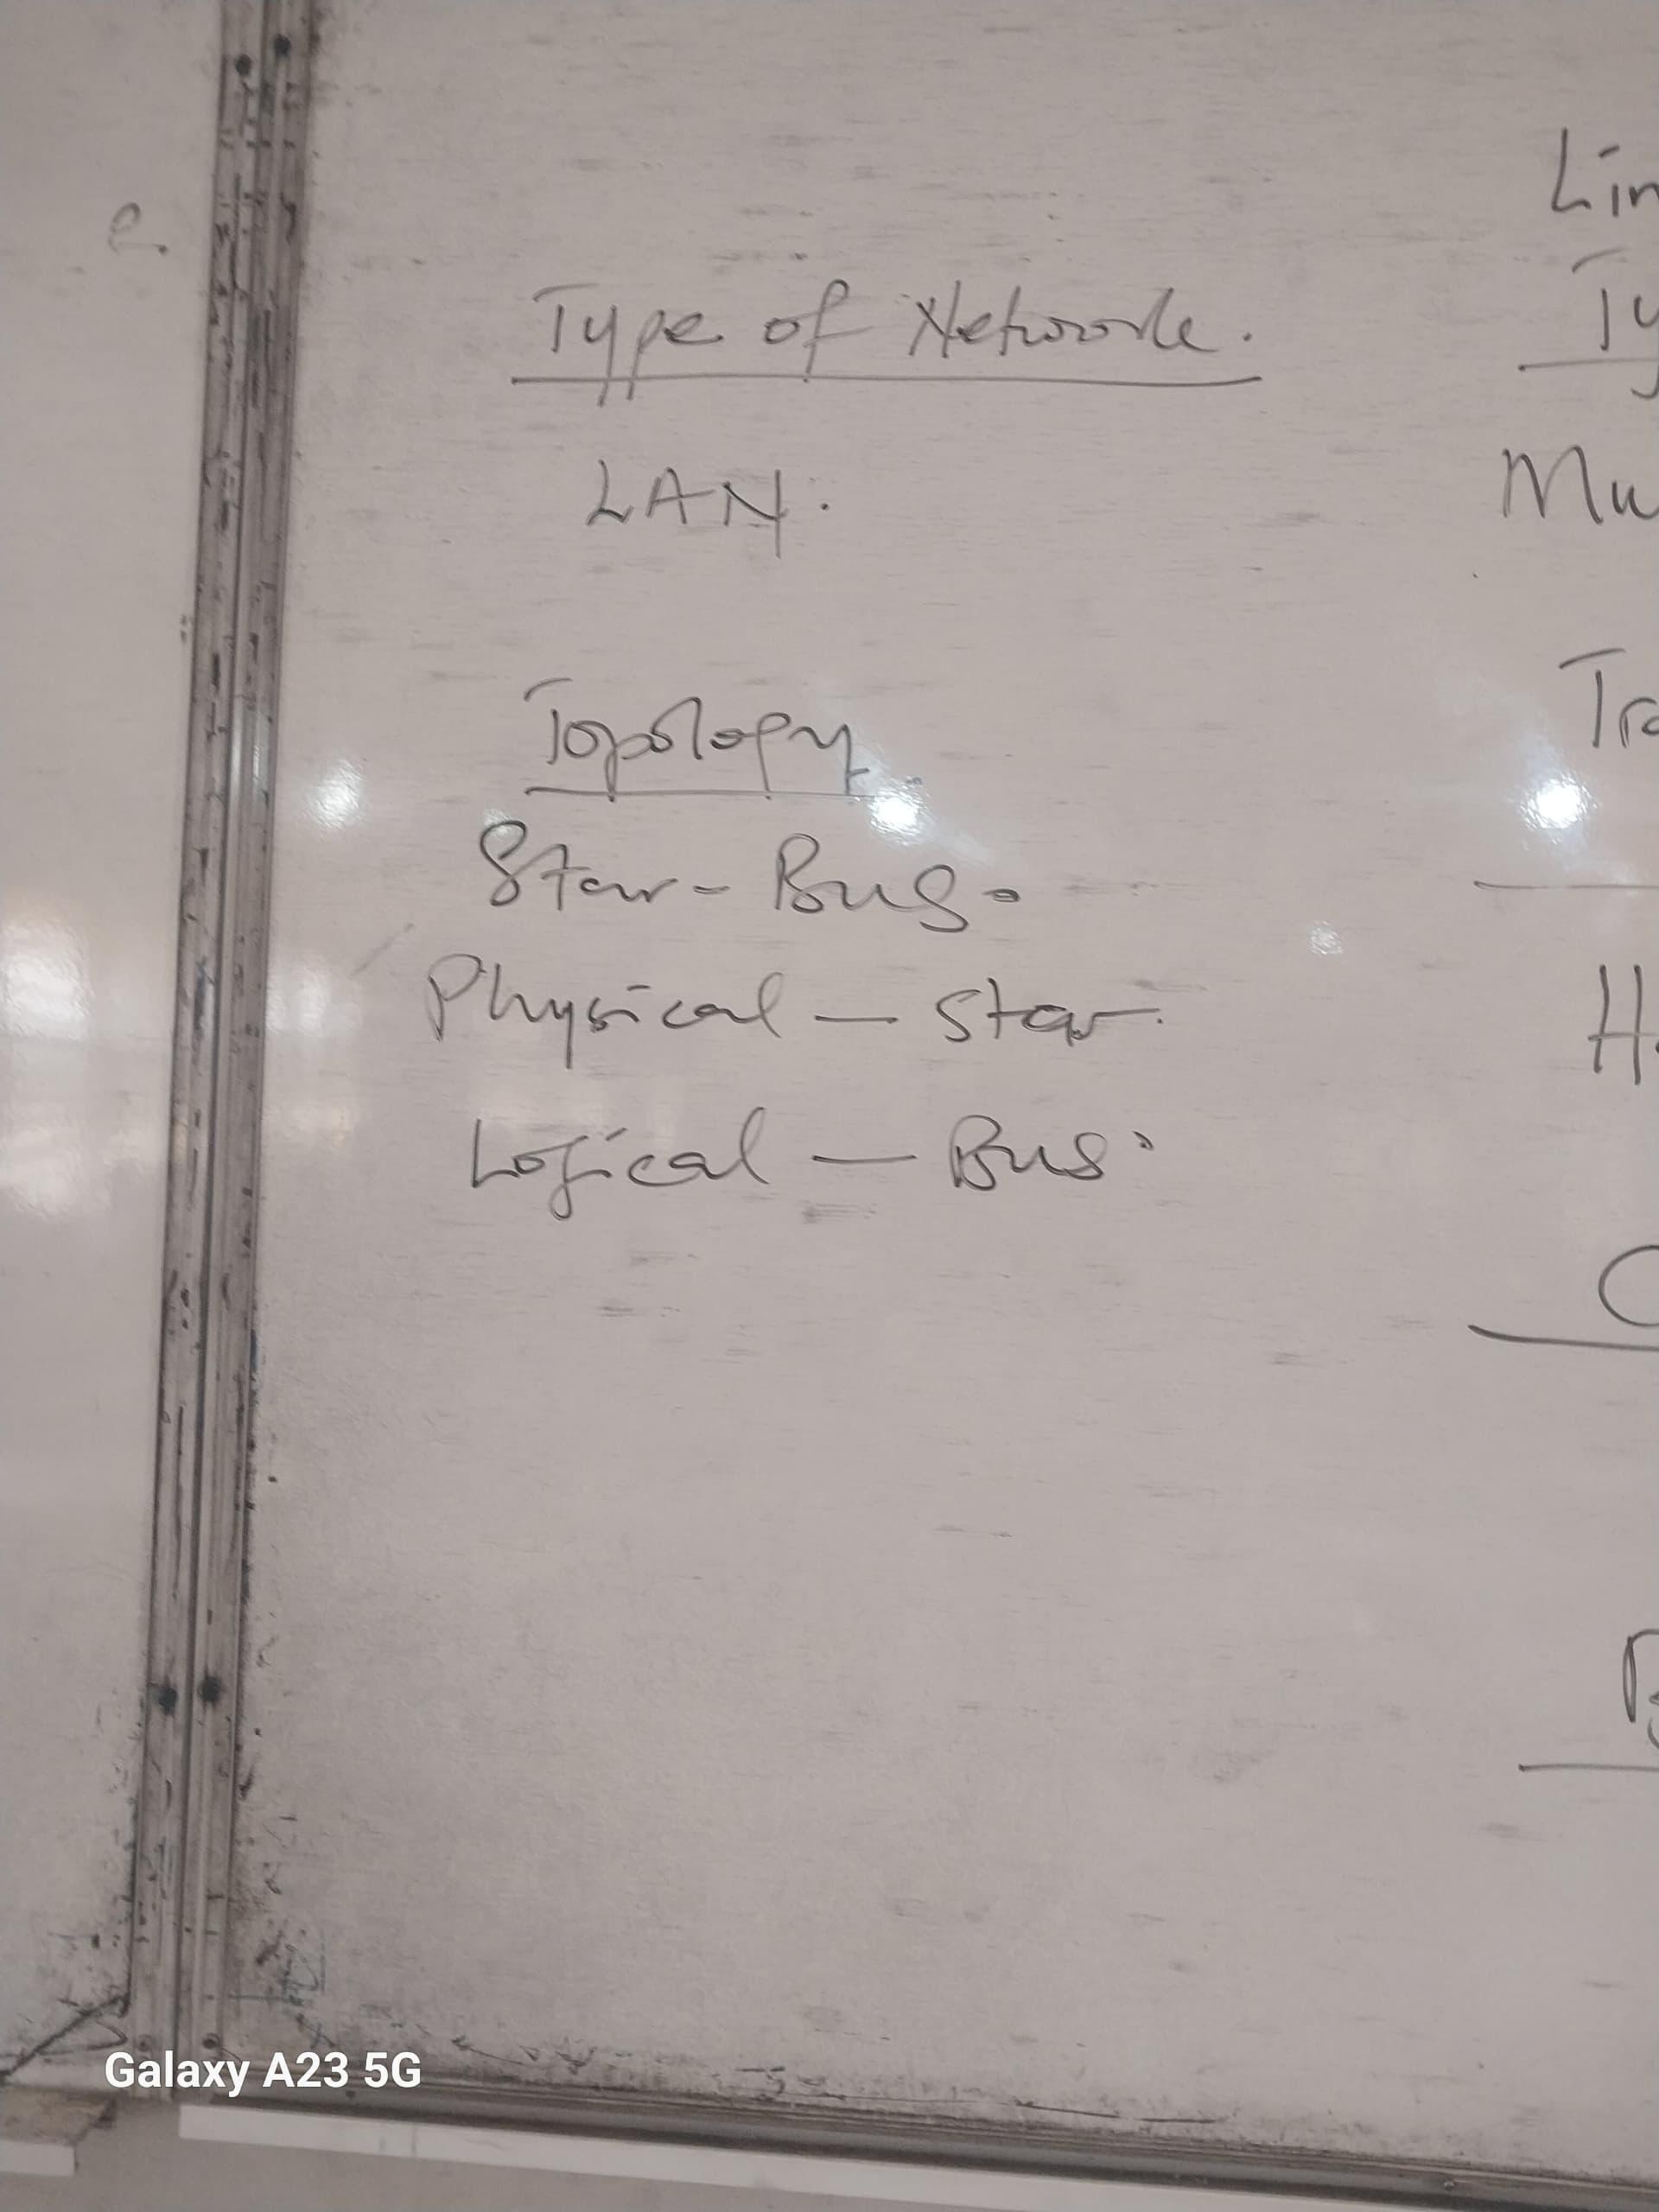 e.
Type of Network.
LAN.
Topology
Star - Bus.
Physical — Star.
Logical — Bus.
Lin
Ty
Mu
Tra
H
C
Galaxy A23 5G